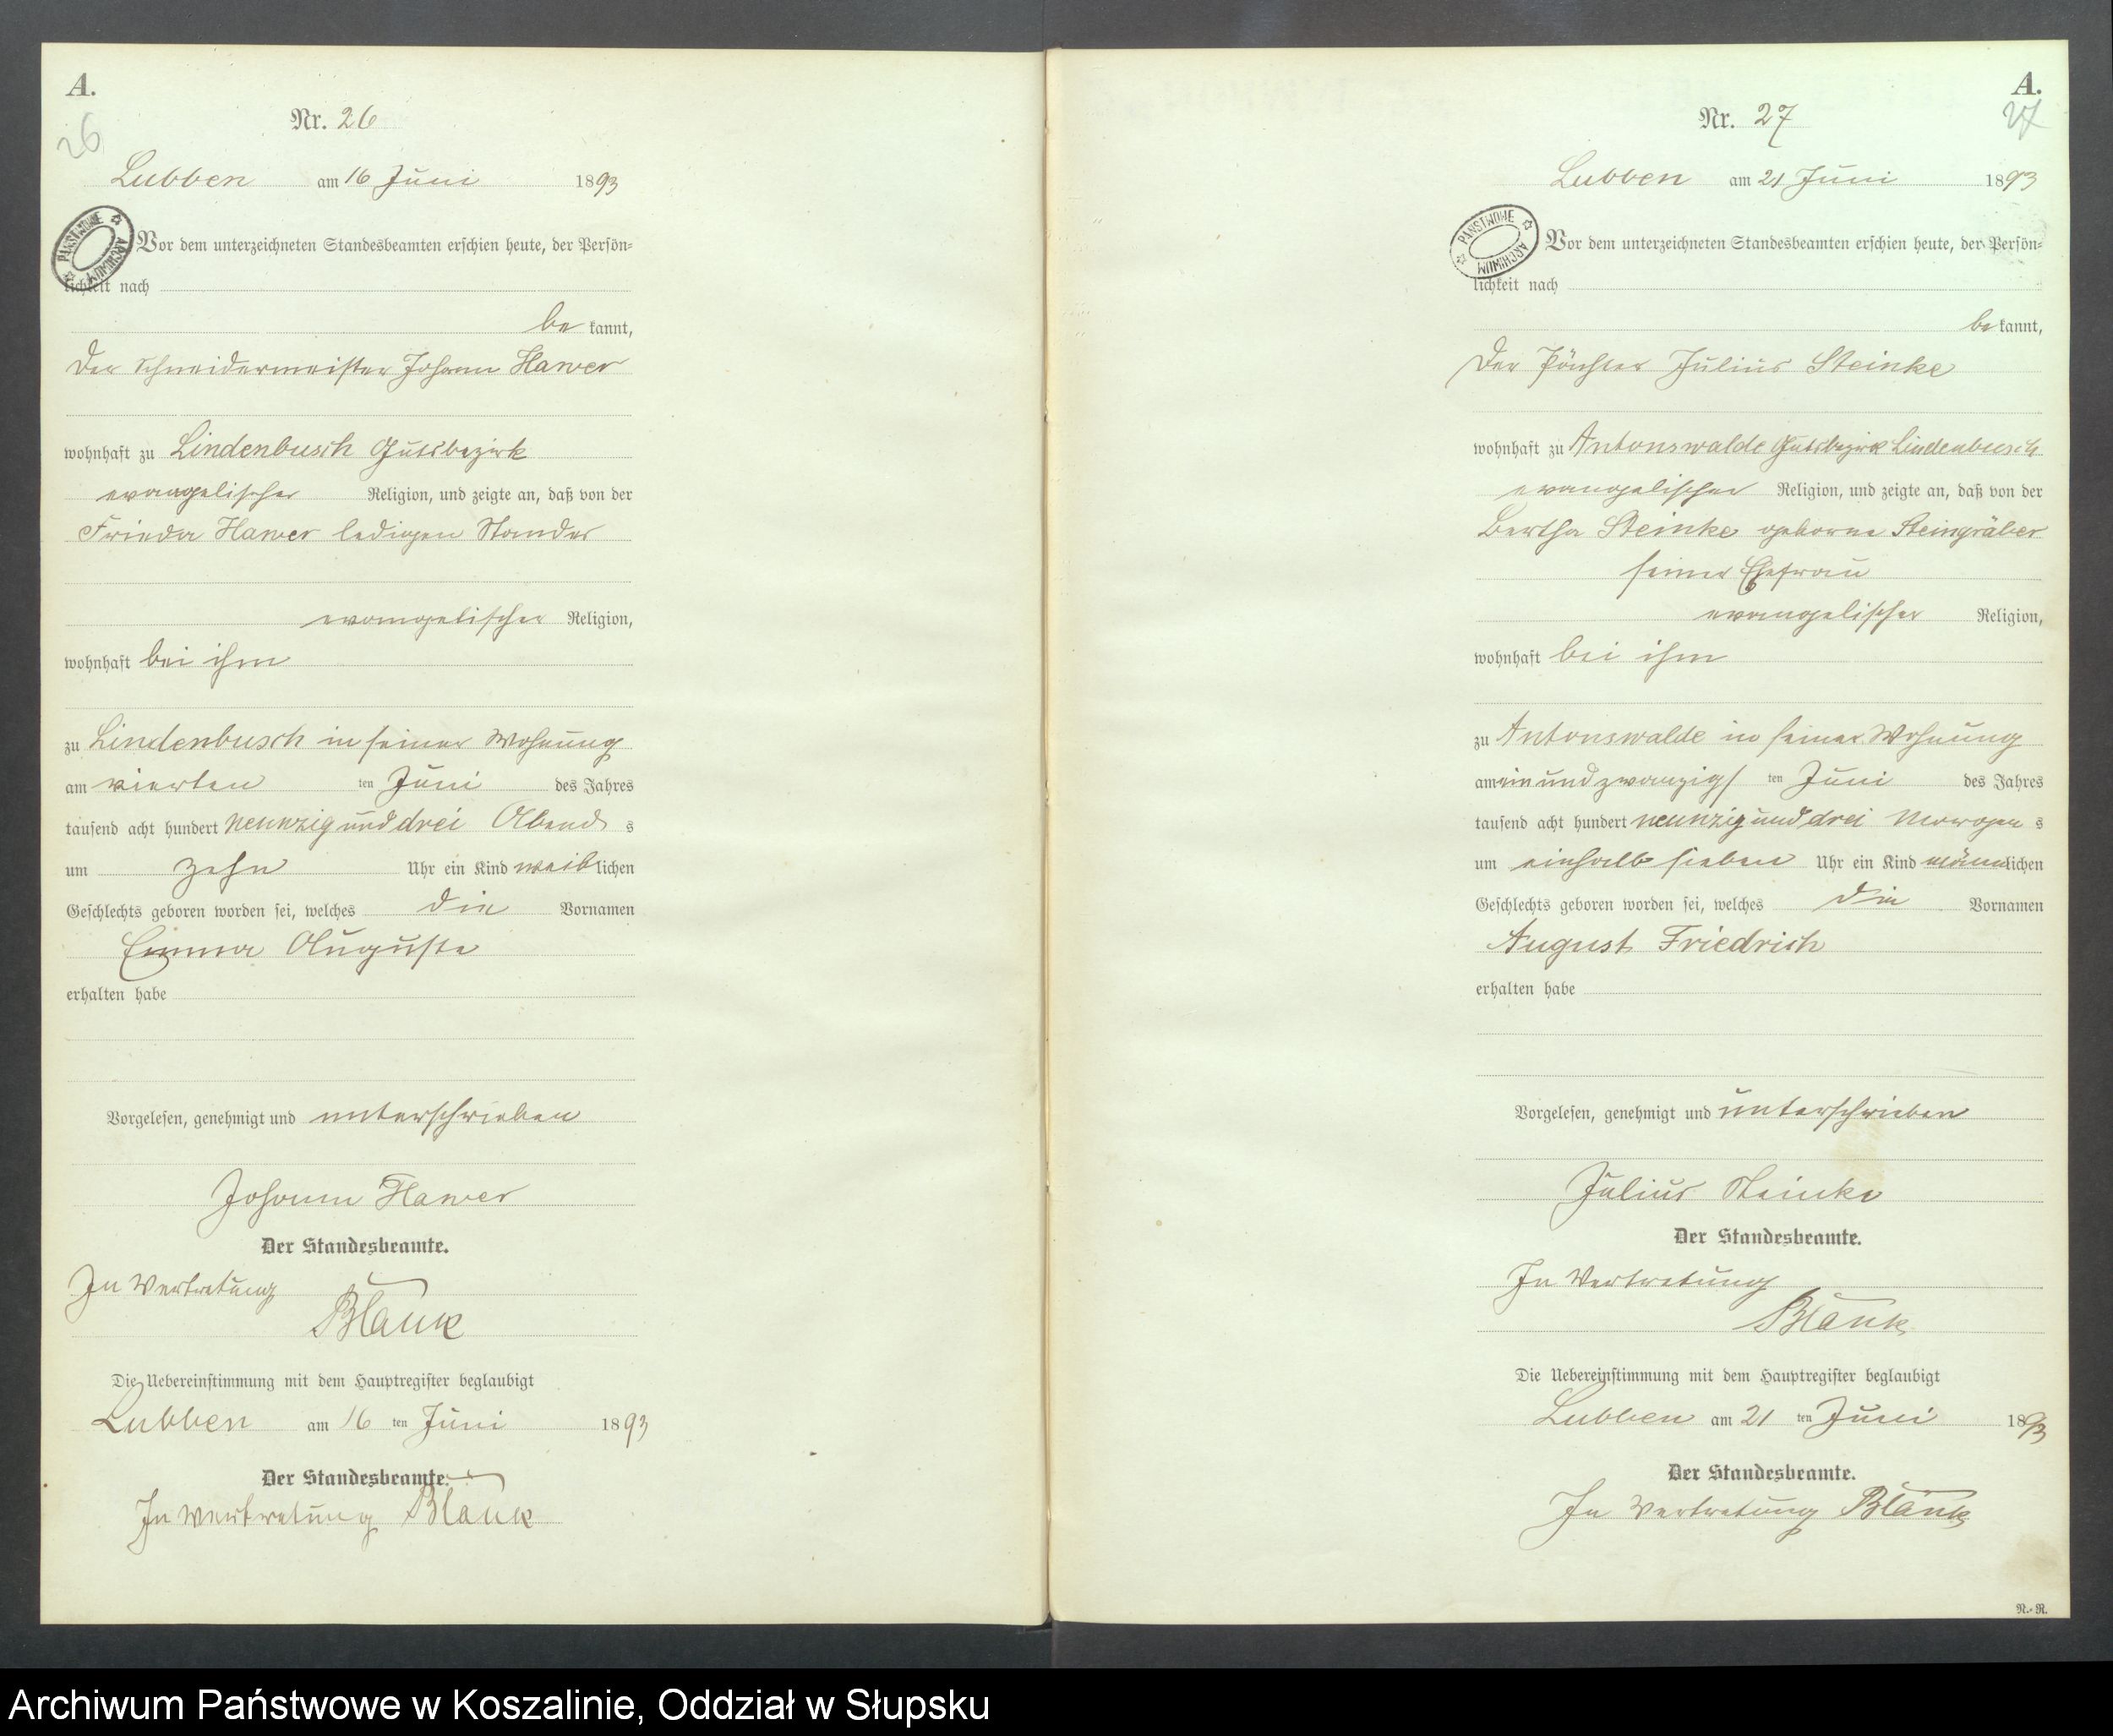 A.
26
Nr. 26
Lubben am 16 Juni 1893
PAŃSTWOWE ARCHIWUM
Vor dem unterzeichneten Standesbeamten erschien heute, der Persön-
lichkeit nach
be kannt,
der Schneidermeister Johann Hawer
wohnhaft zu Lindenbusch Gutsbezirk
evangelischer Religion, und zeigte an, daß von der
Frieda Hawer ledigen Standes
evangelischer Religion,
wohnhaft bei ihm
zu Lindenbusch in seiner Wohnung
am vierten ten Juni des Jahres
tausend acht hundert neunzig und drei Abends
um zehn Uhr ein Kind weiblichen
Geschlechts geboren worden sei, welches die Vornamen
Emma Auguste
erhalten habe
Vorgelesen, genehmigt und unterschrieben
Johann Hawer
Der Standesbeamte.
In Vertretung
Blank
Die Uebereinstimmung mit dem Hauptregister beglaubigt
Lubben am 16 ten Juni 1893
Der Standesbeamte.
In Vertretung Blank
A.
27
Nr. 27
Lubben am 21 Juni 1893
PAŃSTWOWE ARCHIWUM
Vor dem unterzeichneten Standesbeamten erschien heute, der Persön-
lichkeit nach
be kannt,
der Pächter Julius Steinke
wohnhaft zu Antonswalde Gutsbezirk Lindenbusch
evangelischer Religion, und zeigte an, daß von der
Bertha Steinke geborne Steingräber
seiner Ehefrau
evangelischer Religion,
wohnhaft bei ihm
zu Antonswalde in seiner Wohnung
am ein und zwanzigs ten Juni des Jahres
tausend acht hundert neunzig und drei Morgens
um einhalb sieben Uhr ein Kind männlichen
Geschlechts geboren worden sei, welches die Vornamen
August Friedrich
erhalten habe
Vorgelesen, genehmigt und unterschrieben
Julius Steinke
Der Standesbeamte.
In Vertretung
Blank
Die Uebereinstimmung mit dem Hauptregister beglaubigt
Lubben am 21 ten Juni 1893
Der Standesbeamte.
In Vertretung Blank
N.-R.
Archiwum Państwowe w Koszalinie, Oddział w Słupsku